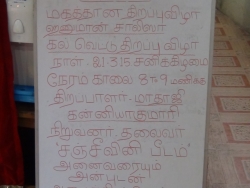 மகத்தான திறப்புவிழா
ஹனுமான் சாலீஸா
கல் வெட்டு திறப்பு விழா
நாள். 21.3.15 சனிக்கிழமை
நேரம் காலை 8 to 9 மணிக்கு
திறப்பாளர்- மாதாஜி
கன்னியாகுமாரி
நிறுவனர் தலைவர்
'சஞ்சீவினி பீடம்'
அனைவரையும்
அன்புடன்